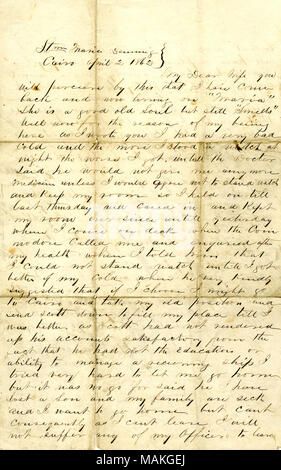 Stmr Maria Denning
Cairo April 2 1862
My Dear Wife you
will perceive by this that I have come
back and now living on "Maria"
She is a good old Soul but still "Smells"
Well now for the reason of my being
here as I wrote you I had a very bad
Cold and the more I stood a watch at
night the worse I got, untill the Doctor
Said he would not give me any more
medicine unless I would agree not to stand watch
and keep my room so I held on till
last thursday and Caved in and Kept
my room ever since untill yesterday
when I come on deck when the Com
modore Called me and enquired after
my health when I told him that
I Could not stand watch untill I got
better of my cold when he very kindly
suggested that if I choose I might go
to Cairo and take my old position and
send Scott down to fill my place till I
was better as Scott had not rendered
up his accounts satisfactory from the
fact that he had not the Education or
ability to manage a receiving ship I
tried very hard to let me go home
but it was no go for said he I have
lost a son and my family are sick
and I want to go home but cant
consequently as I cant leave I will
not suffer any of my Officers to leave
alamy
Image ID: MAKGEJ
www.alamy.com